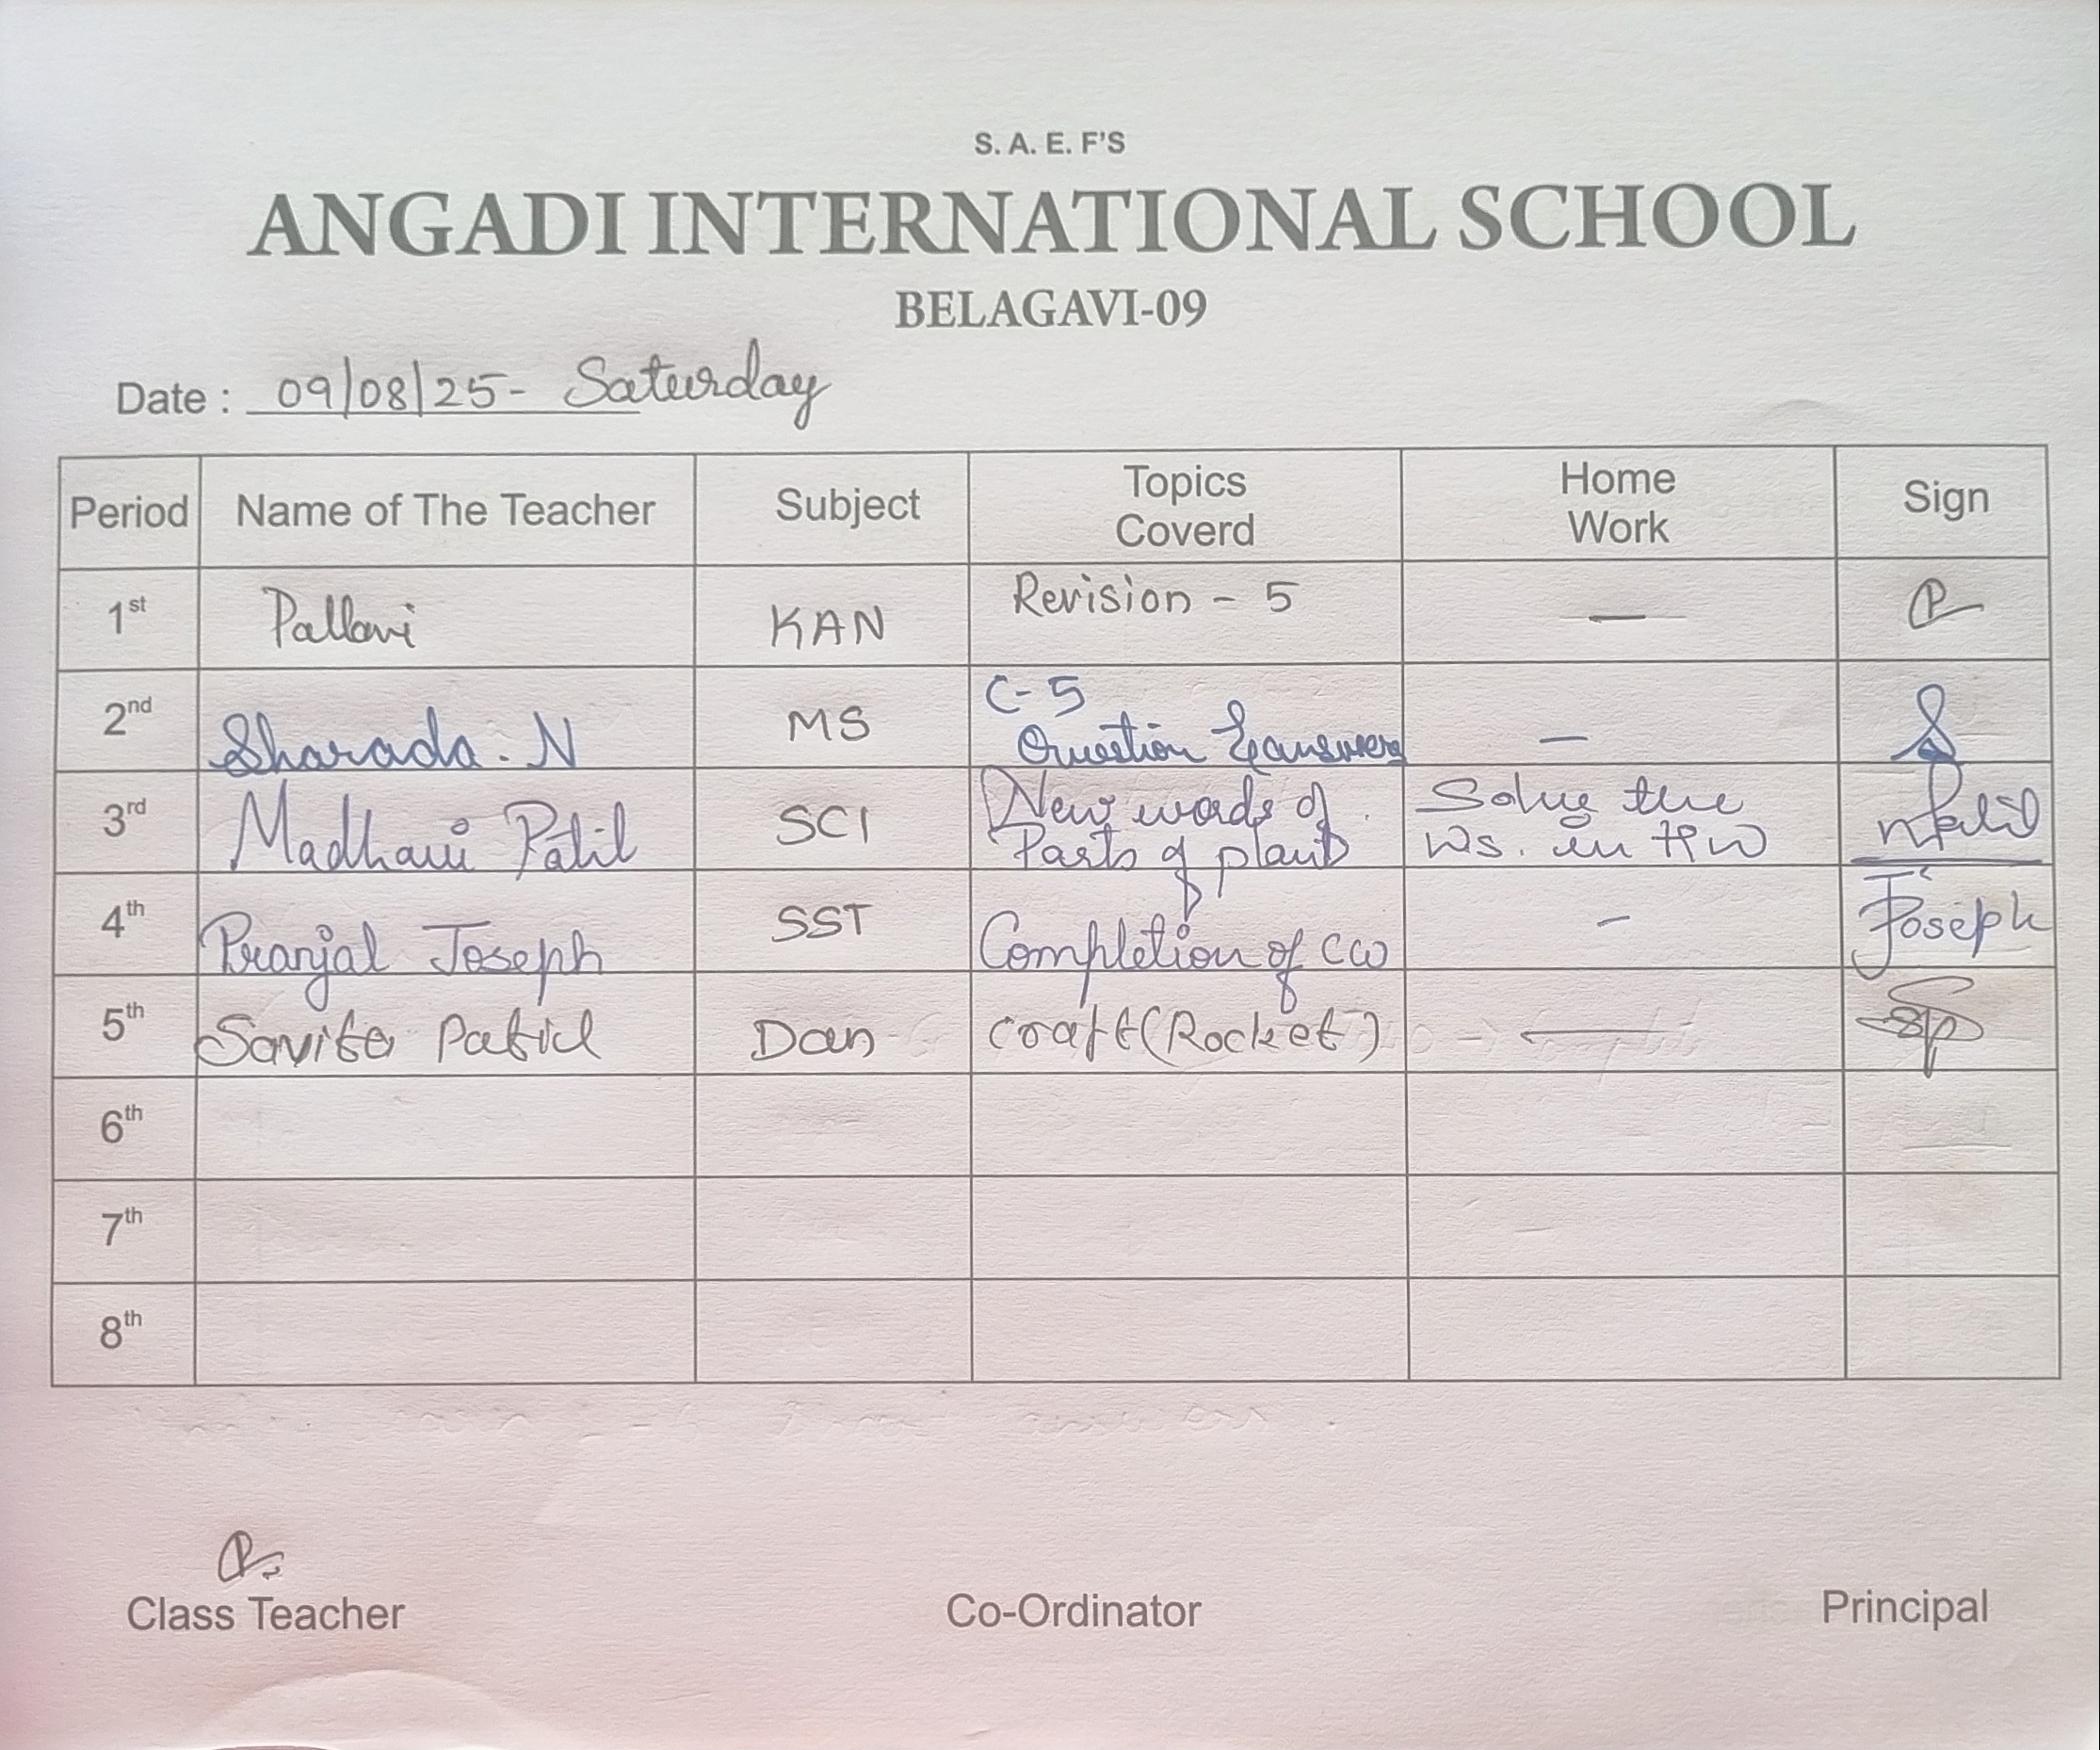 S. A. E. F'S
ANGADI INTERNATIONAL SCHOOL
BELAGAVI-09
Date : 09/08/25- Saturday
Period Name of The Teacher Subject Topics Coverd Home Work Sign
1st Pallavi KAN Revision - 5 —
2nd Sharada. N MS C-5 Question & answers —
3rd Madhavi Patil SCI New words of Parts of plant Solve the Ws. in HW Patil
4th Pranjal Joseph SST Completion of CW - Joseph
5th Savita Patil Dan craft (Rocket) — Sp
6th
7th
8th
Class Teacher Co-Ordinator Principal